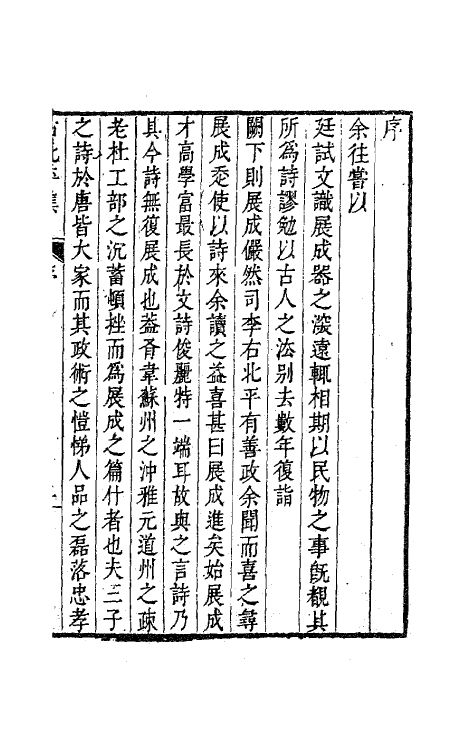 序
余往嘗以
廷試文識展成器之淡遠輒相期以民物之事旣覩其
所爲詩謬勉以古人之法别去數年復詣
闕下則展成儼然司李右北平有善政余聞而喜之尋
展成委使以詩來余讀之益喜甚曰展成進矣始展成
才高學富最長於文詩俊麗特一端耳故與之言詩乃
其今詩無復展成也葢胥韋蘇州之沖雅元道州之疎
老杜工部之沉蓄頓挫而爲展成之篇什者也夫三子
之詩於唐皆大家而其政術之愷悌人品之磊落忠孝